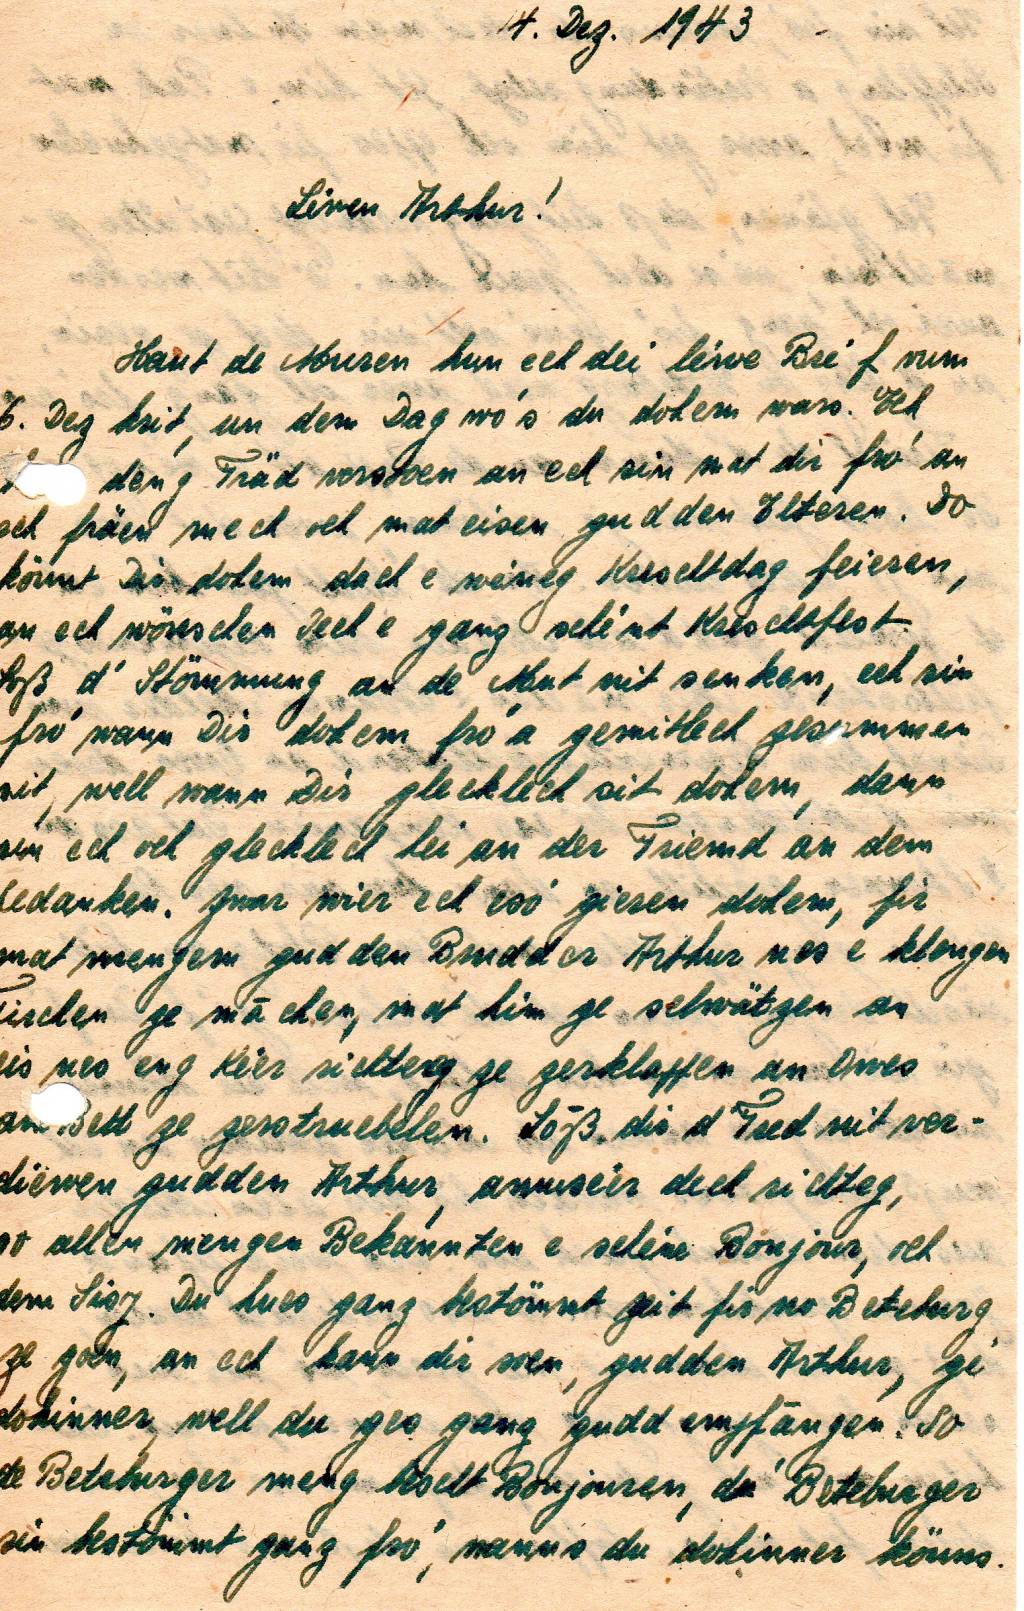 14. Dez. 1943
Léiwen Arthur!
Haut de Muren hun ech dei léiwe Bréi f vum
6. Dez krit, un dem Dag wó's du dohem wars. Ech
deng Träd verstoen an ech sin mat dir fró an
ech fräen mech och mat eisen gudden Elteren. Do
könnt Dir dohem dach e wéineg Krëschtdag feieren,
an ech wönschen Iech e ganz schéint Krëschtfest.
Loß d' Stömmung an de Mut nit senken, ech sin
fró wann Dir dohem fró a gemitlech zesummen
sit, well wann Dir glecklech sit dohem, dann
sin ech och glecklech hei an der Friemd an dem
Gedanken. Zwar wier ech esó gieren dohem, fir
mat mengem gudden Brudder Arthur nes e klengen
Tischen ze māchen, mat him ze schwätzen an
eis nes eng Kéier richteg ze zerklappen an Owes
am Bett ze zerstruebelen. Lôß dir d Fred nit ver-
diewen gudden Arthur, amuséir dech richteg,
so allen mengen Bekannten e schéine Bonjour, och
dem Sisy. Du hues ganz bestömmt Zeit fir no Beteburg
ze goen, an ech kann dir soen, gudden Arthur, gé
dohinner, well du ges ganz gudd empfāngen. So
de Beteburger meng bescht Bonjouren, dé Beteburger
sin bestömmt ganz fró, wanns du dohinner könns.